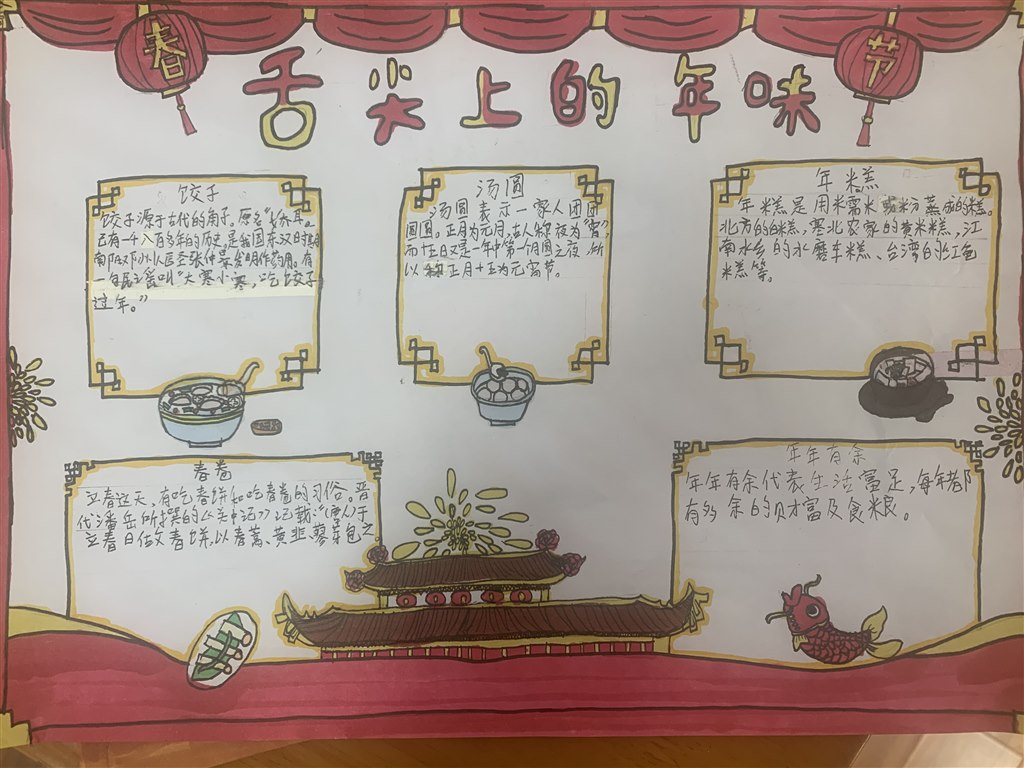 春
节
舌尖上的年味
饺子
饺子源于古代的角子,原名"娇耳。
已有一千八百多年的历史。是我国东汉时期
南阳邓州人医圣张仲景发明作药用。有
一句民谣叫"大寒小寒,吃饺子
过年。"
汤圆
汤圆表示一家人团团
圆圆。正月为元月,古人称夜为"宵"
而十五日又是一年中第一个月圆之夜,所
以称正月十五为元宵节。
年糕
年糕是用米糯米或米分蒸成的糕。
北方的白糕,塞北农家的黄米糕,江
南水乡的水磨年糕、台湾的红色
米糕等。
春卷
立春这天,有吃春饼和吃春卷的习俗。晋
代潘岳所撰的《关中记》记载:"唐人于
立春日做春饼,以春蒿、黄韭、蓼芽包之
年年有余
年年有余代表生活富足,每年都
有多余的财富及食粮。